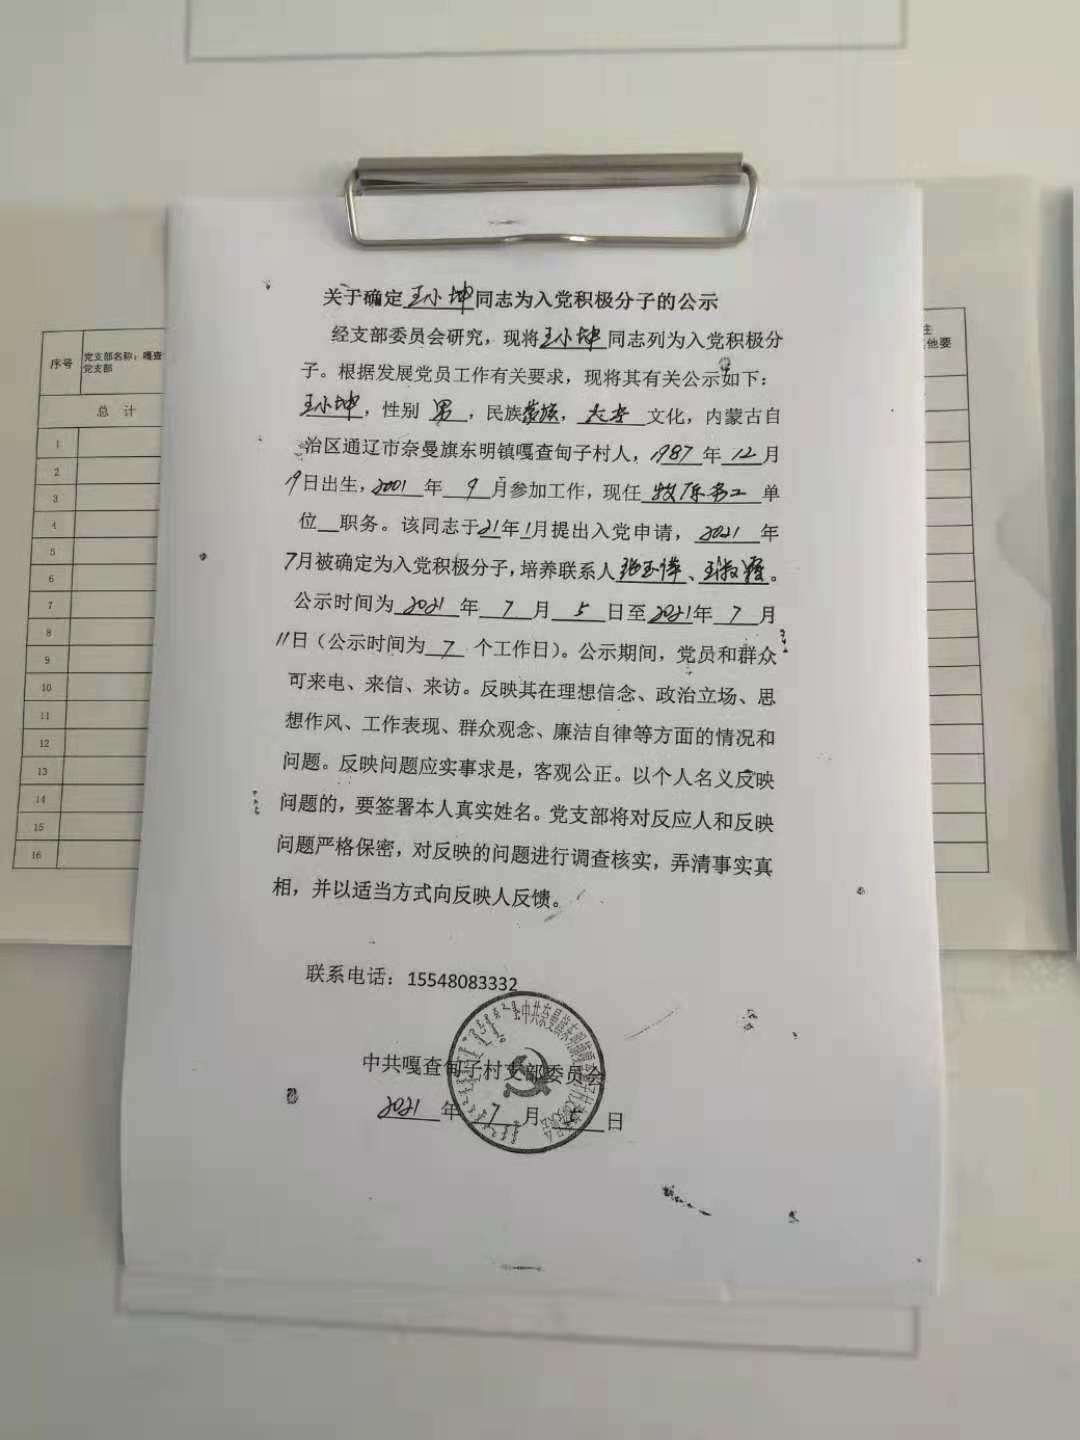 关于确定王小坤同志为入党积极分子的公示
经支部委员会研究，现将王小坤同志列为入党积极分
子。根据发展党员工作有关要求，现将其有关公示如下：
王小坤，性别 男，民族蒙族，大学 文化，内蒙古自
治区通辽市奈曼旗东明镇嘎查甸子村人，1987年12月
9日出生，2001年 9月参加工作，现任 单
位__职务。该同志于21年1月提出入党申请，2021年
7月被确定为入党积极分子，培养联系人张玉伟、王淑霞。
公示时间为2021年7月5日至2021年7月
11日（公示时间为7个工作日）。公示期间，党员和群众
可来电、来信、来访。反映其在理想信念、政治立场、思
想作风、工作表现、群众观念、廉洁自律等方面的情况和
问题。反映问题应实事求是，客观公正。以个人名义反映
问题的，要签署本人真实姓名。党支部将对反应人和反映
问题严格保密，对反映的问题进行调查核实，弄清事实真
相，并以适当方式向反映人反馈。
联系电话：15548083332
中共嘎查甸子村支部委员会
2021年7月5日
序号
党支部名称：嘎查
党支部
总 计
1
2
3
4
5
6
7
8
9
10
11
12
13
14
15
16
注
他要